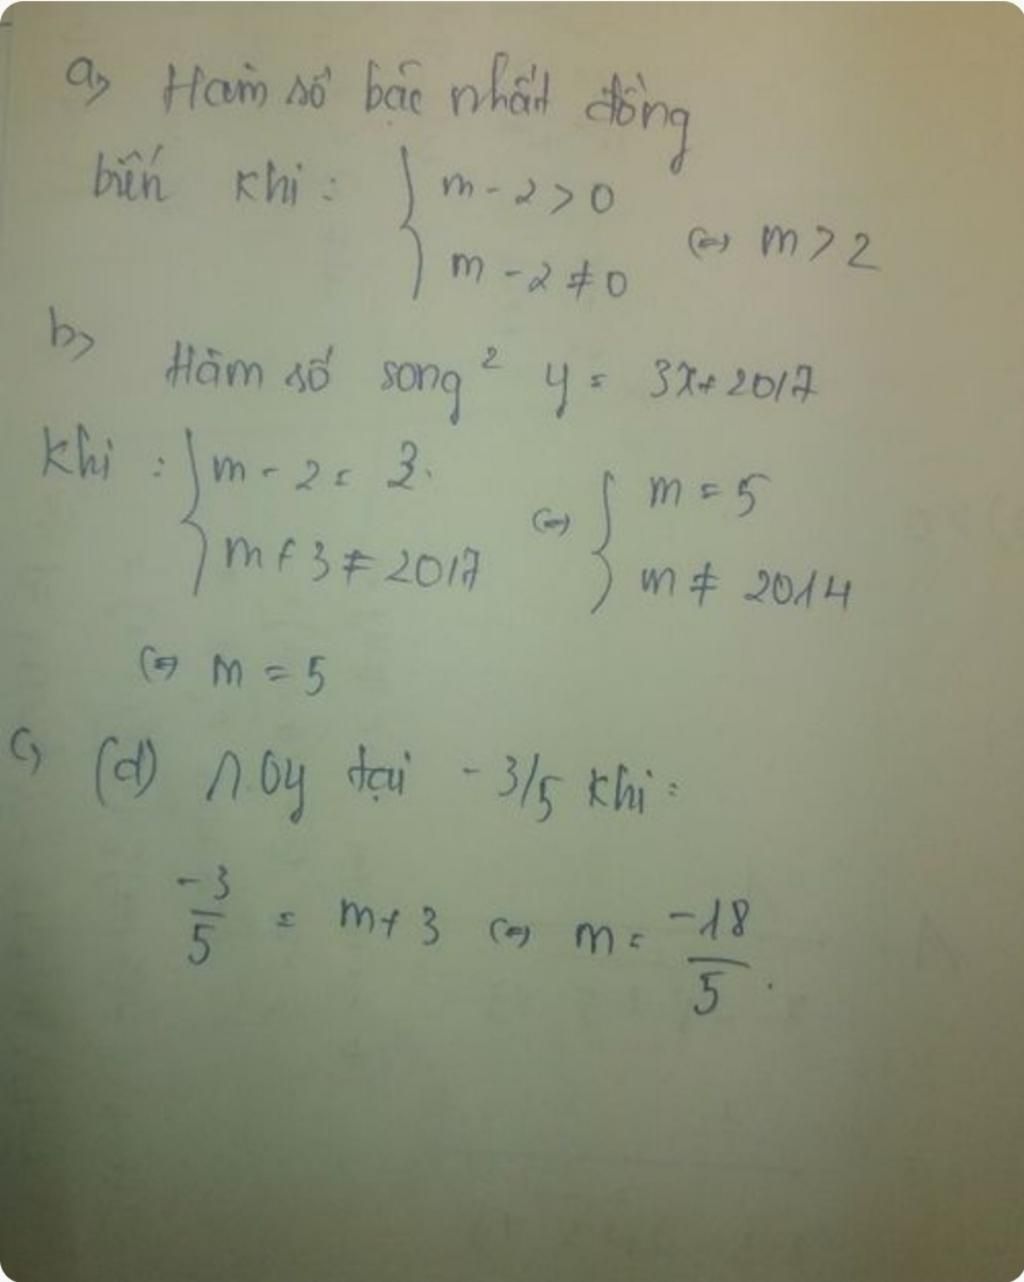 a, Hàm số bậc nhất đồng
biến khi : { m - 2 > 0
m - 2 ≠ 0 (=) m > 2
b, Hàm số song² y = 3x + 2017
khi : { m - 2 = 3.
m + 3 ≠ 2017 (=) { m = 5
m ≠ 2014
(=) m = 5
c, (d) ∩ Oy tại - 3/5 khi :
-3/5 = m + 3 (=) m = -18/5.